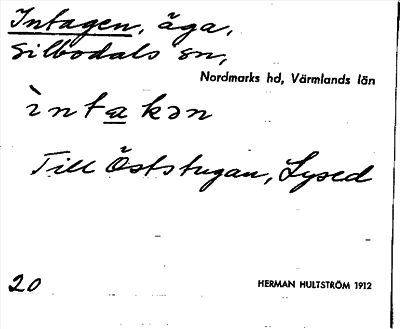 Intagen, äga,
Silbodals sn,
Nordmarks hd, Värmlands län
ìntakən
Till Öststugan, Lysed
20
HERMAN HULTSTRÖM 1912